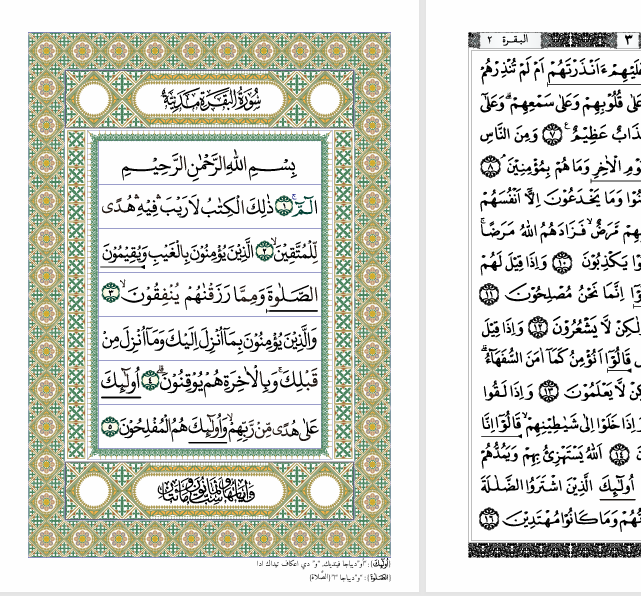 سُورَةُ الْبَقَرَةِ مَدَنِيَّةٌ
بِسْمِ اللهِ الرَّحْمٰنِ الرَّحِيْمِ
الٓمّٓ ۚ ﴿١﴾ ذٰلِكَ الْكِتٰبُ لَا رَيْبَ ۛ فِيْهِ ۛ هُدًى
لِّلْمُتَّقِيْنَ ۙ ﴿٢﴾ الَّذِيْنَ يُؤْمِنُوْنَ بِالْغَيْبِ وَيُقِيْمُوْنَ
الصَّلٰوةَ وَمِمَّا رَزَقْنٰهُمْ يُنْفِقُوْنَ ۙ ﴿٣﴾
وَالَّذِيْنَ يُؤْمِنُوْنَ بِمَآ اُنْزِلَ اِلَيْكَ وَمَآ اُنْزِلَ مِنْ
قَبْلِكَ ۚ وَبِالْاٰخِرَةِ هُمْ يُوْقِنُوْنَ ۗ ﴿٤﴾ اُولٰٓئِكَ
عَلٰى هُدًى مِّنْ رَّبِّهِمْ ۙ وَاُولٰٓئِكَ هُمُ الْمُفْلِحُوْنَ ﴿٥﴾
٣
البقرة ٢
عَلَيْهِمْ ءَاَنْذَرْتَهُمْ اَمْ لَمْ تُنْذِرْهُمْ
قُلُوْبِهِمْ وَعَلٰى سَمْعِهِمْ ۗ وَعَلٰٓى
عَذَابٌ عَظِيْمٌ ࣖ ﴿٧﴾ وَمِنَ النَّاسِ
الْاٰخِرِ وَمَا هُمْ بِمُؤْمِنِيْنَ ۘ ﴿٨﴾
وَمَا يَخْدَعُوْنَ اِلَّآ اَنْفُسَهُمْ
مَّرَضٌ ۙ فَزَادَهُمُ اللهُ مَرَضًا ۚ
يَكْذِبُوْنَ ﴿١٠﴾ وَاِذَا قِيْلَ لَهُمْ
اِنَّمَا نَحْنُ مُصْلِحُوْنَ ﴿١١﴾
لَا يَشْعُرُوْنَ ﴿١٢﴾ وَاِذَا قِيْلَ
قَالُوْٓا اَنُؤْمِنُ كَمَآ اٰمَنَ السُّفَهَآءُ ۗ
لَا يَعْلَمُوْنَ ﴿١٣﴾ وَاِذَا لَقُوا
اِذَا خَلَوْا اِلٰى شَيٰطِيْنِهِمْ ۙ قَالُوْٓا اِنَّا
﴿١٤﴾ اَللهُ يَسْتَهْزِئُ بِهِمْ وَيَمُدُّهُمْ
اُولٰٓئِكَ الَّذِيْنَ اشْتَرَوُا الضَّلٰلَةَ
وَمَا كَانُوْا مُهْتَدِيْنَ ﴿١٦﴾